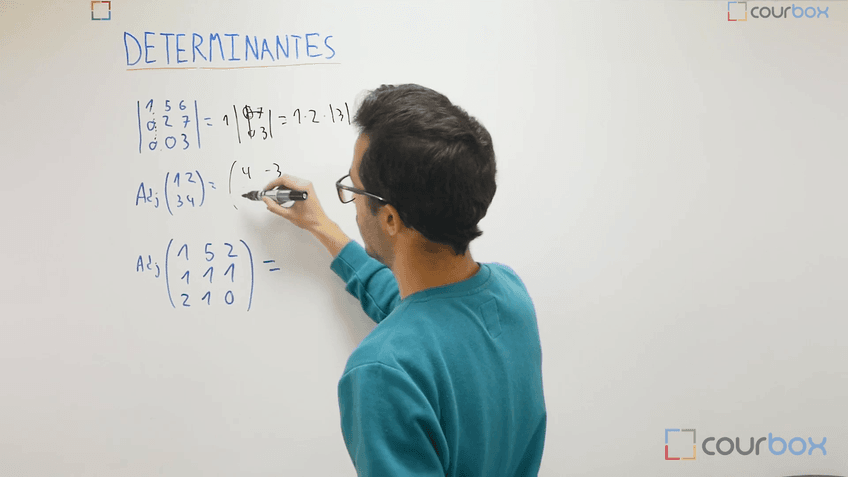 courbox
DETERMINANTES
|1 5 6
0 2 7
0 0 3| = 1 | 7
0 3| = 1·2·|3|
Adj (1 2
3 4) = (4 -3
Adj (1 5 2
1 1 1
2 1 0) =
courbox